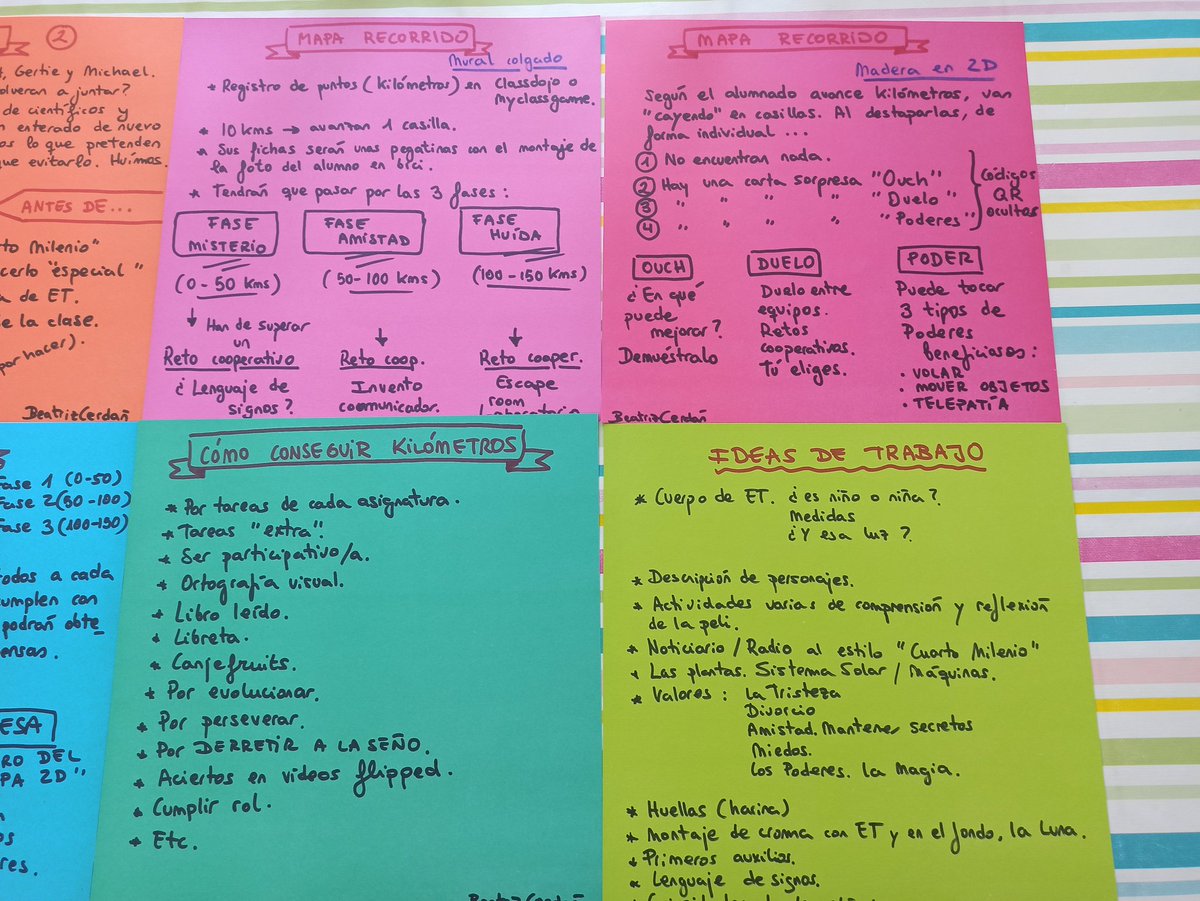 2
Gertie y Michael.
a juntar?
de científicos y
enterado de nuevo
lo que pretenden
que evitarlo. Huimos.
ANTES DE...
Milenio"
"especial"
de ET.
la clase.
por hacer).
BeatrizCerdañ
MAPA RECORRIDO
Mural colgado
* Registro de puntos (kilómetros) en Classdojo o
Myclassgame.
* 10 kms → avanzan 1 casilla.
* Sus fichas serán unas pegatinas con el montaje de
la foto del alumno en bici.
* Tendrán que pasar por las 3 fases:
FASE MISTERIO
FASE AMISTAD
FASE HUÍDA
(0-50 kms)
(50-100 kms)
(100-150 kms)
↓ Han de superar
un
Reto cooperativo
Reto coop.
Reto cooper.
¿Lenguaje de
signos?
Invento
comunicador.
Escape
room
Laboratorio
MAPA RECORRIDO
Madera en 2D
Según el alumnado avance kilómetros, van
"cayendo" en casillas. Al destaparlas, de
forma individual ...
1 No encuentran nada.
2 Hay una carta sorpresa "Ouch"
3 " " " " "Duelo"
4 " " " " "Poderes"
Códigos
QR
ocultos
OUCH
¿En qué
puede
mejorar?
Demuéstralo
DUELO
Duelo entre
equipos.
Retos
cooperativos.
Tú eliges.
PODER
Puede tocar
3 tipos de
Poderes
beneficiosos:
• VOLAR
• MOVER OBJETOS
• TELEPATÍA
BeatrizCerdañ
Fase 1 (0-50)
Fase 2 (50-100)
Fase 3 (100-150)
todos a cada
cumplen con
podrán obte
DEL
2D"
CÓMO CONSEGUIR KILÓMETROS
* Por tareas de cada asignatura.
* Tareas "extra".
* Ser participativo/a.
* Ortografía visual.
* Libro leído.
* Libreta.
* Canjefruits.
* Por evolucionar.
* Por perseverar.
* Por DERRETIR A LA SEÑO.
* Aciertos en vídeos flipped.
* Cumplir rol.
* Etc.
BeatrizCerdañ
IDEAS DE TRABAJO
* Cuerpo de ET. ¿es niño o niña?
Medidas
¿Y esa luz?
* Descripción de personajes.
* Actividades varias de comprensión y reflexión
de la peli.
* Noticiario / Radio al estilo "Cuarto Milenio"
* Las plantas. Sistema Solar / Máquinas.
* Valores: La Tristeza
Divorcio
Amistad. Mantener secretos
Miedos.
Los Poderes. La Magia.
* Huellas (harina)
* Montaje de cromma con ET y en el fondo, la Luna.
* Primeros auxilios.
* Lenguaje de signos.